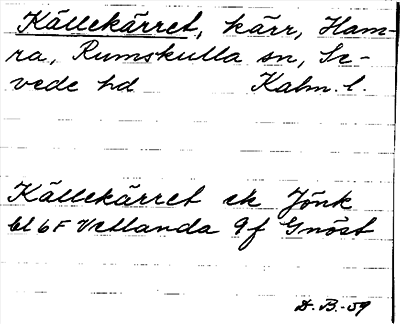 Källekärret, kärr, Ham-
ra, Rumskulla sn, Se-
vede hd Kalm. l.
Källekärret ek Jönk
bl 6F Vetlanda 9f Gnöst
D. B. -59